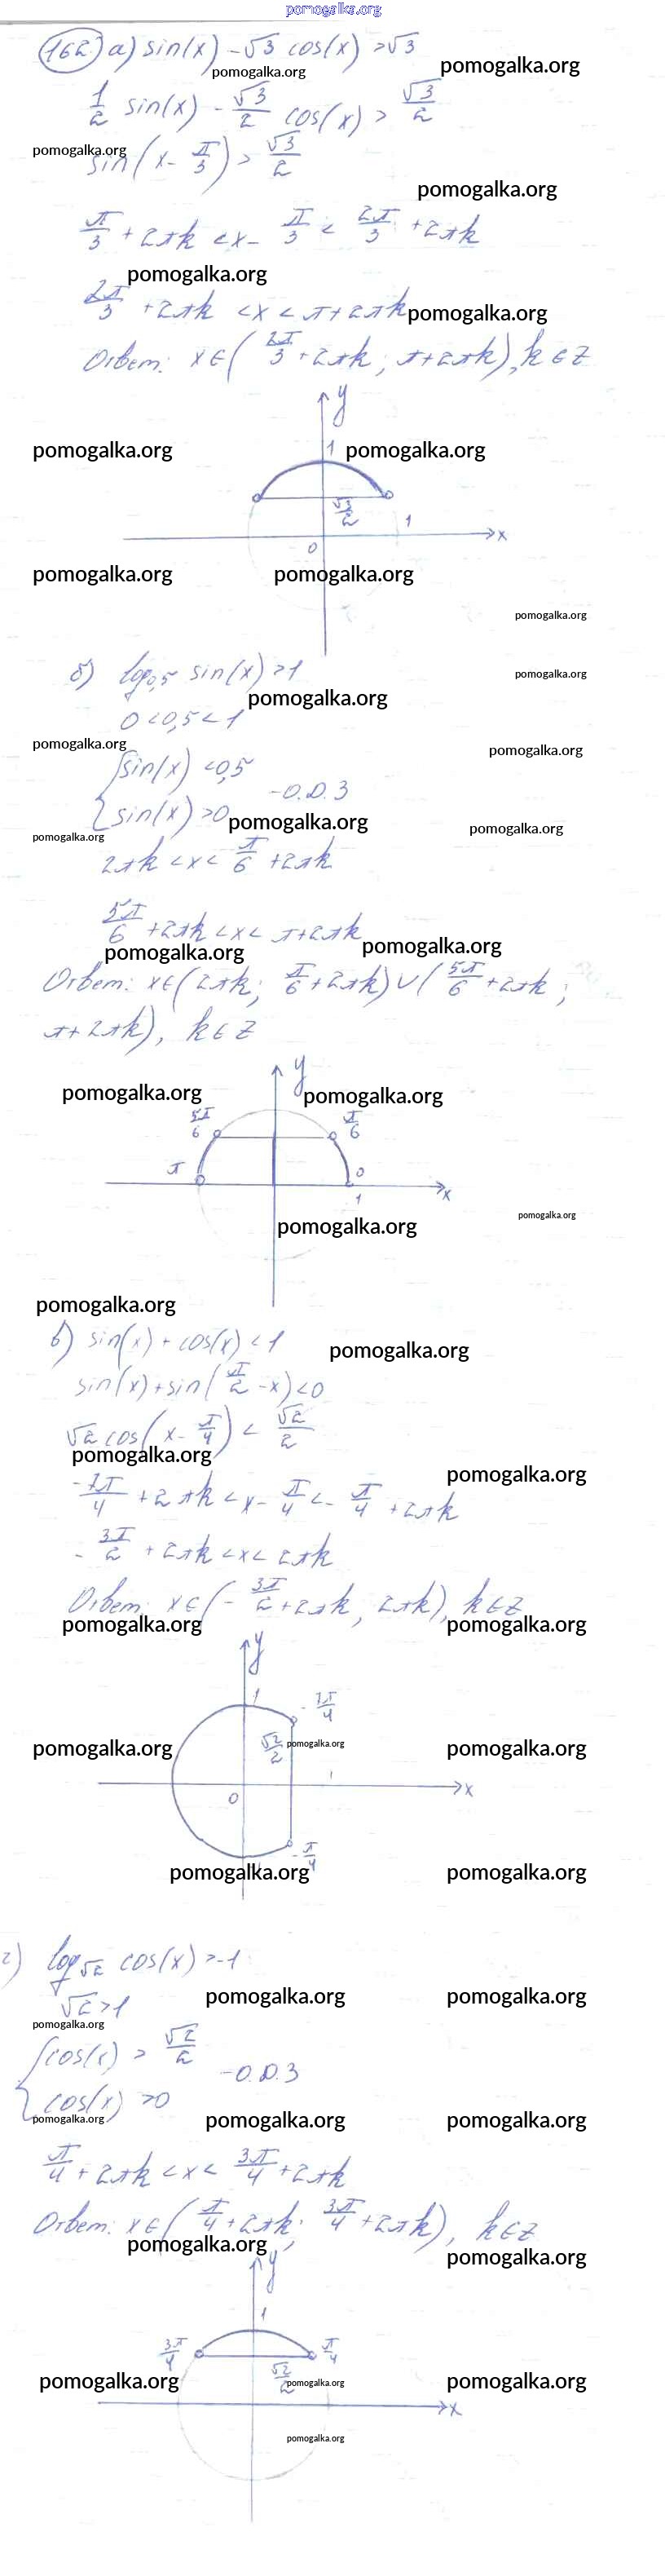 pomogalka.org
162 а) sin(x) - √3 cos(x) > √3
pomogalka.org
pomogalka.org
1/2 sin(x) - √3/2 cos(x) > √3/2
pomogalka.org
sin(x - π/3) > √3/2
pomogalka.org
π/3 + 2πk < x - π/3 < 2π/3 + 2πk
pomogalka.org
2π/3 + 2πk < x < π + 2πk
pomogalka.org
Ответ: x ∈ (2π/3 + 2πk; π + 2πk), k ∈ Z
y
pomogalka.org
1
pomogalka.org
√3/2
1
x
0
pomogalka.org
pomogalka.org
pomogalka.org
б) log0,5 sin(x) > 1
pomogalka.org
pomogalka.org
0 < 0,5 < 1
pomogalka.org
pomogalka.org
{ sin(x) < 0,5
sin(x) > 0 - О.D.З
pomogalka.org
pomogalka.org
pomogalka.org
2πk < x < π/6 + 2πk
5π/6 + 2πk < x < π + 2πk
pomogalka.org
pomogalka.org
Ответ: x ∈ (2πk; π/6 + 2πk) ∪ (5π/6 + 2πk;
π + 2πk), k ∈ Z
y
pomogalka.org
pomogalka.org
5π/6
π/6
π
0
1
x
pomogalka.org
pomogalka.org
pomogalka.org
в) sin(x) + cos(x) < 1
pomogalka.org
sin(x) + sin(π/2 - x) < 0
√2 cos(x - π/4) < √2/2
pomogalka.org
pomogalka.org
-7π/4 + 2πk < x - π/4 < - π/4 + 2πk
- 3π/2 + 2πk < x < 2πk
Ответ: x ∈ (- 3π/2 + 2πk, 2πk), k ∈ Z
pomogalka.org
pomogalka.org
y
1
- 7π/4
pomogalka.org
√2/2
pomogalka.org
pomogalka.org
x
0
- π/4
pomogalka.org
pomogalka.org
г) log√2 cos(x) > -1
√2 > 1
pomogalka.org
pomogalka.org
pomogalka.org
{ cos(x) > √2/2
cos(x) > 0 - О.D.З
pomogalka.org
pomogalka.org
pomogalka.org
π/4 + 2πk < x < 3π/4 + 2πk
Ответ: x ∈ (π/4 + 2πk; 3π/4 + 2πk), k ∈ Z
pomogalka.org
pomogalka.org
y
1
3π/4
π/4
√2/2
pomogalka.org
pomogalka.org
pomogalka.org
x
pomogalka.org